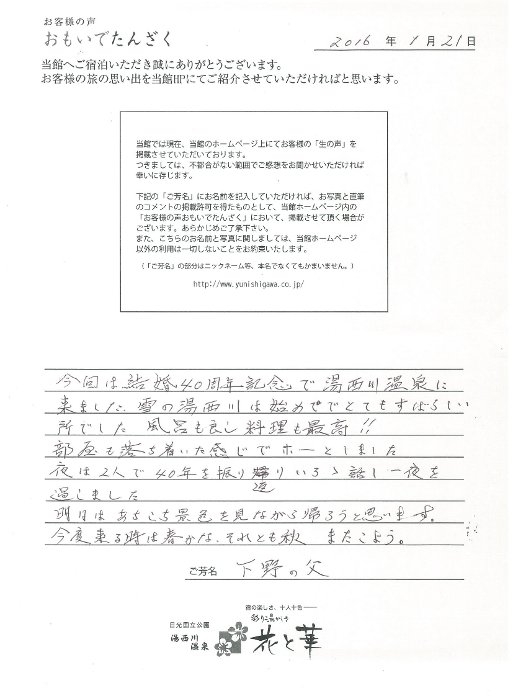 お客様の声
おもいでたんざく
2016 年 1 月 21 日
当館へご宿泊いただき誠にありがとうございます。
お客様の旅の思い出を当館HPにてご紹介させていただければと思います。
当館では現在、当館のホームページ上にてお客様の「生の声」を
掲載させていただいております。
つきましては、不都合がない範囲でご感想をお聞かせいただければ
幸いに存じます。
下記の「ご芳名」にお名前を記入していただければ、お写真と直筆
のコメントの掲載許可を得たものとして、当館ホームページ内の
「お客様の声おもいでたんざく」において、掲載させて頂く場合が
ございます。あらかじめご了承下さい。
また、こちらのお名前と写真に関しましては、当館ホームページ
以外の利用は一切しないことをお約束いたします。
(「ご芳名」の部分はニックネーム等、本名でなくてもかまいません。)
http://www.yunishigawa.co.jp/
今回は結婚40周年記念で湯西川温泉に
来ました 雪の湯西川は始めてでとてもすばらしい
所でした 風呂も良し料理も最高!!
部屋も落ち着いた感じでホーとしました
夜は2人で40年を振り返りいろいろ話し一夜を
過しました
明日はあちこち景色を見ながら帰ろうと思います。
今度来る時は春かな、それとも秋 またこよう。
ご芳名 下野の父
夜の楽しさ、十人十色
彩り湯かしき
日光国立公園
湯西川
温泉
花と華